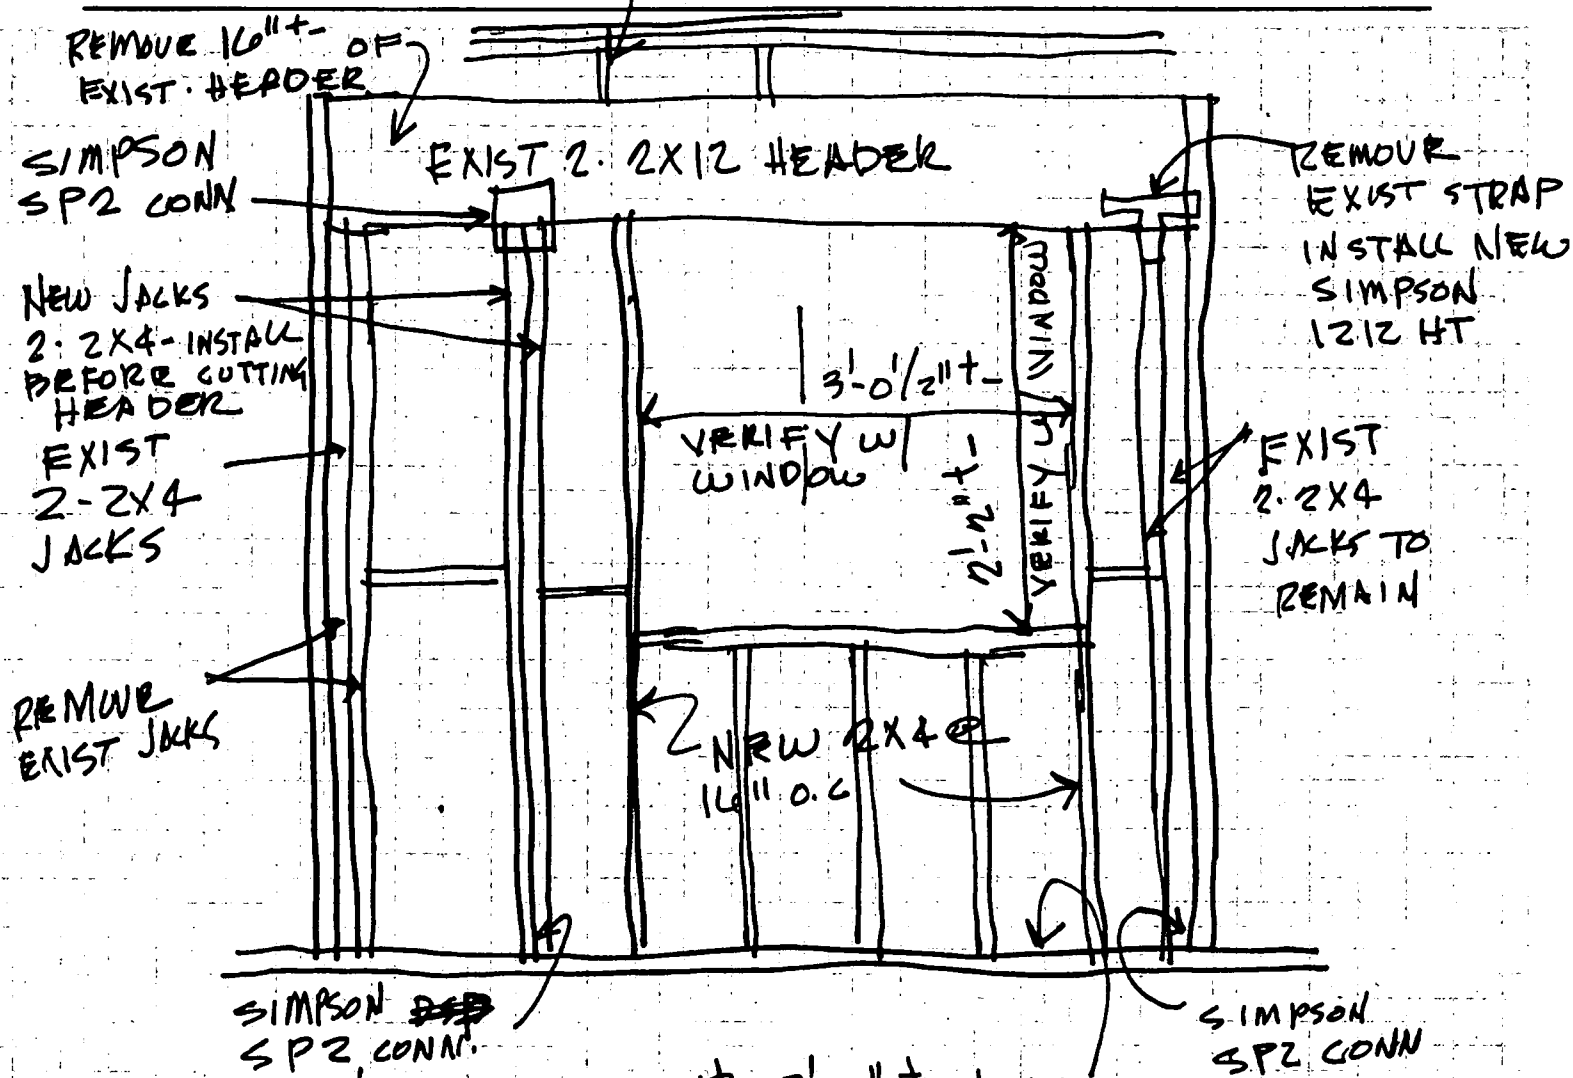 REMOVE 16"+- OF
EXIST. HEADER
SIMPSON
SP2 CONN
EXIST 2. 2X12 HEADER
REMOVE
EXIST STRAP
INSTALL NEW
SIMPSON
1212 HT
NEW JACKS
2. 2X4-INSTALL
BEFORE CUTTING
HEADER
EXIST
2-2X4
JACKS
3'-0 1/2"+-
VERIFY W/
WINDOW
2'-2"+-
VERIFY W/ WINDOW
EXIST
2. 2X4
JACKS TO
REMAIN
REMOVE
EXIST JACKS
NEW 2X4 @
16" O.C
SIMPSON
SP2 CONN.
SIMPSON
SP2 CONN